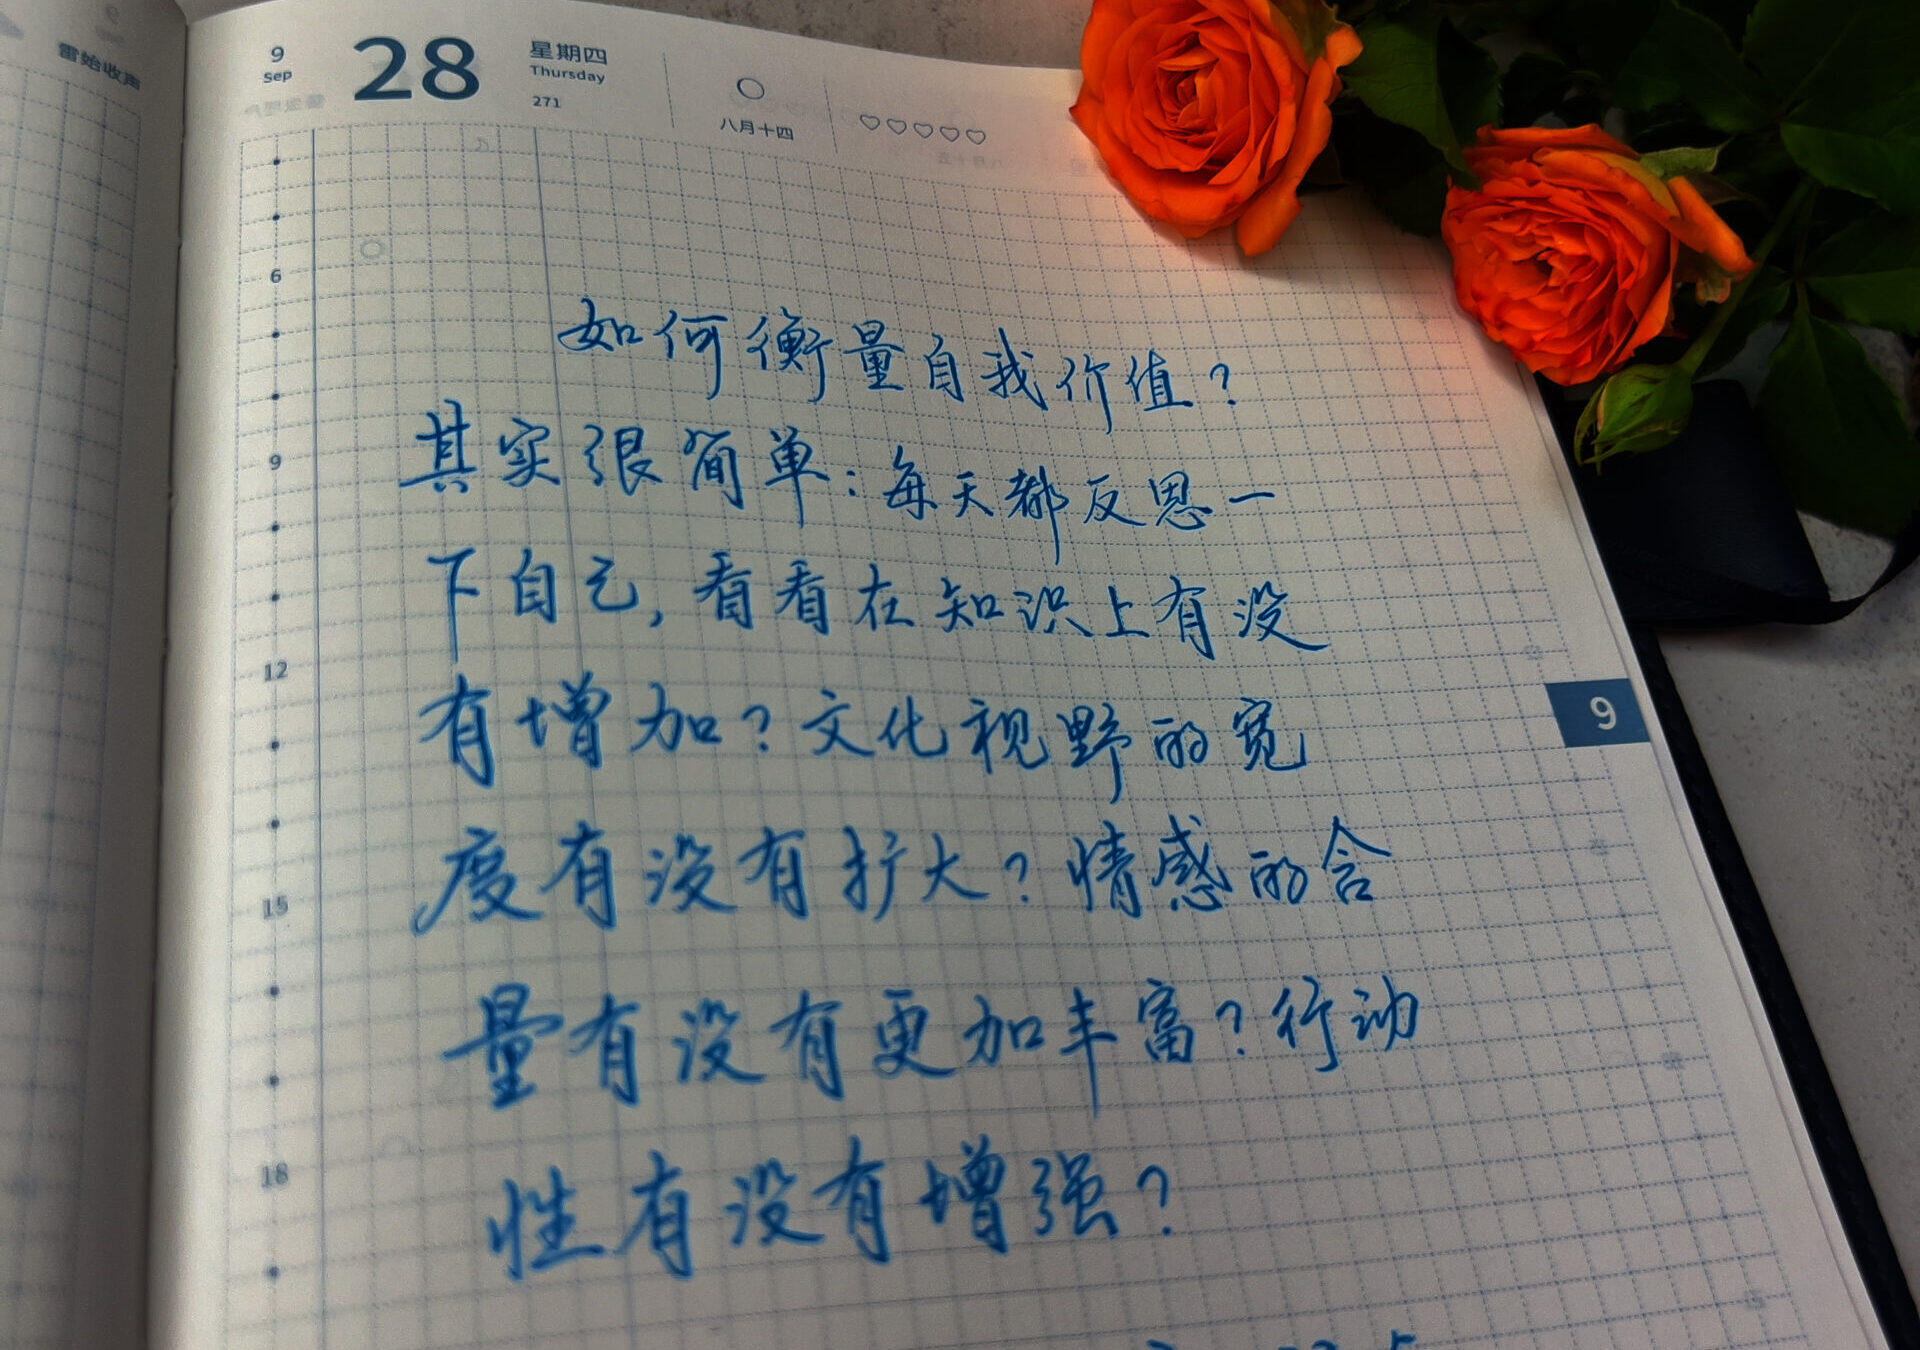 雷始收声
9
Sep
28
星期四
Thursday
271
八月十四
6
9
12
15
18
9
如何衡量自我价值?
其实很简单:每天都反思一
下自己,看看在知识上有没
有增加?文化视野的宽
度有没有扩大?情感的含
量有没有更加丰富?行动
性有没有增强?